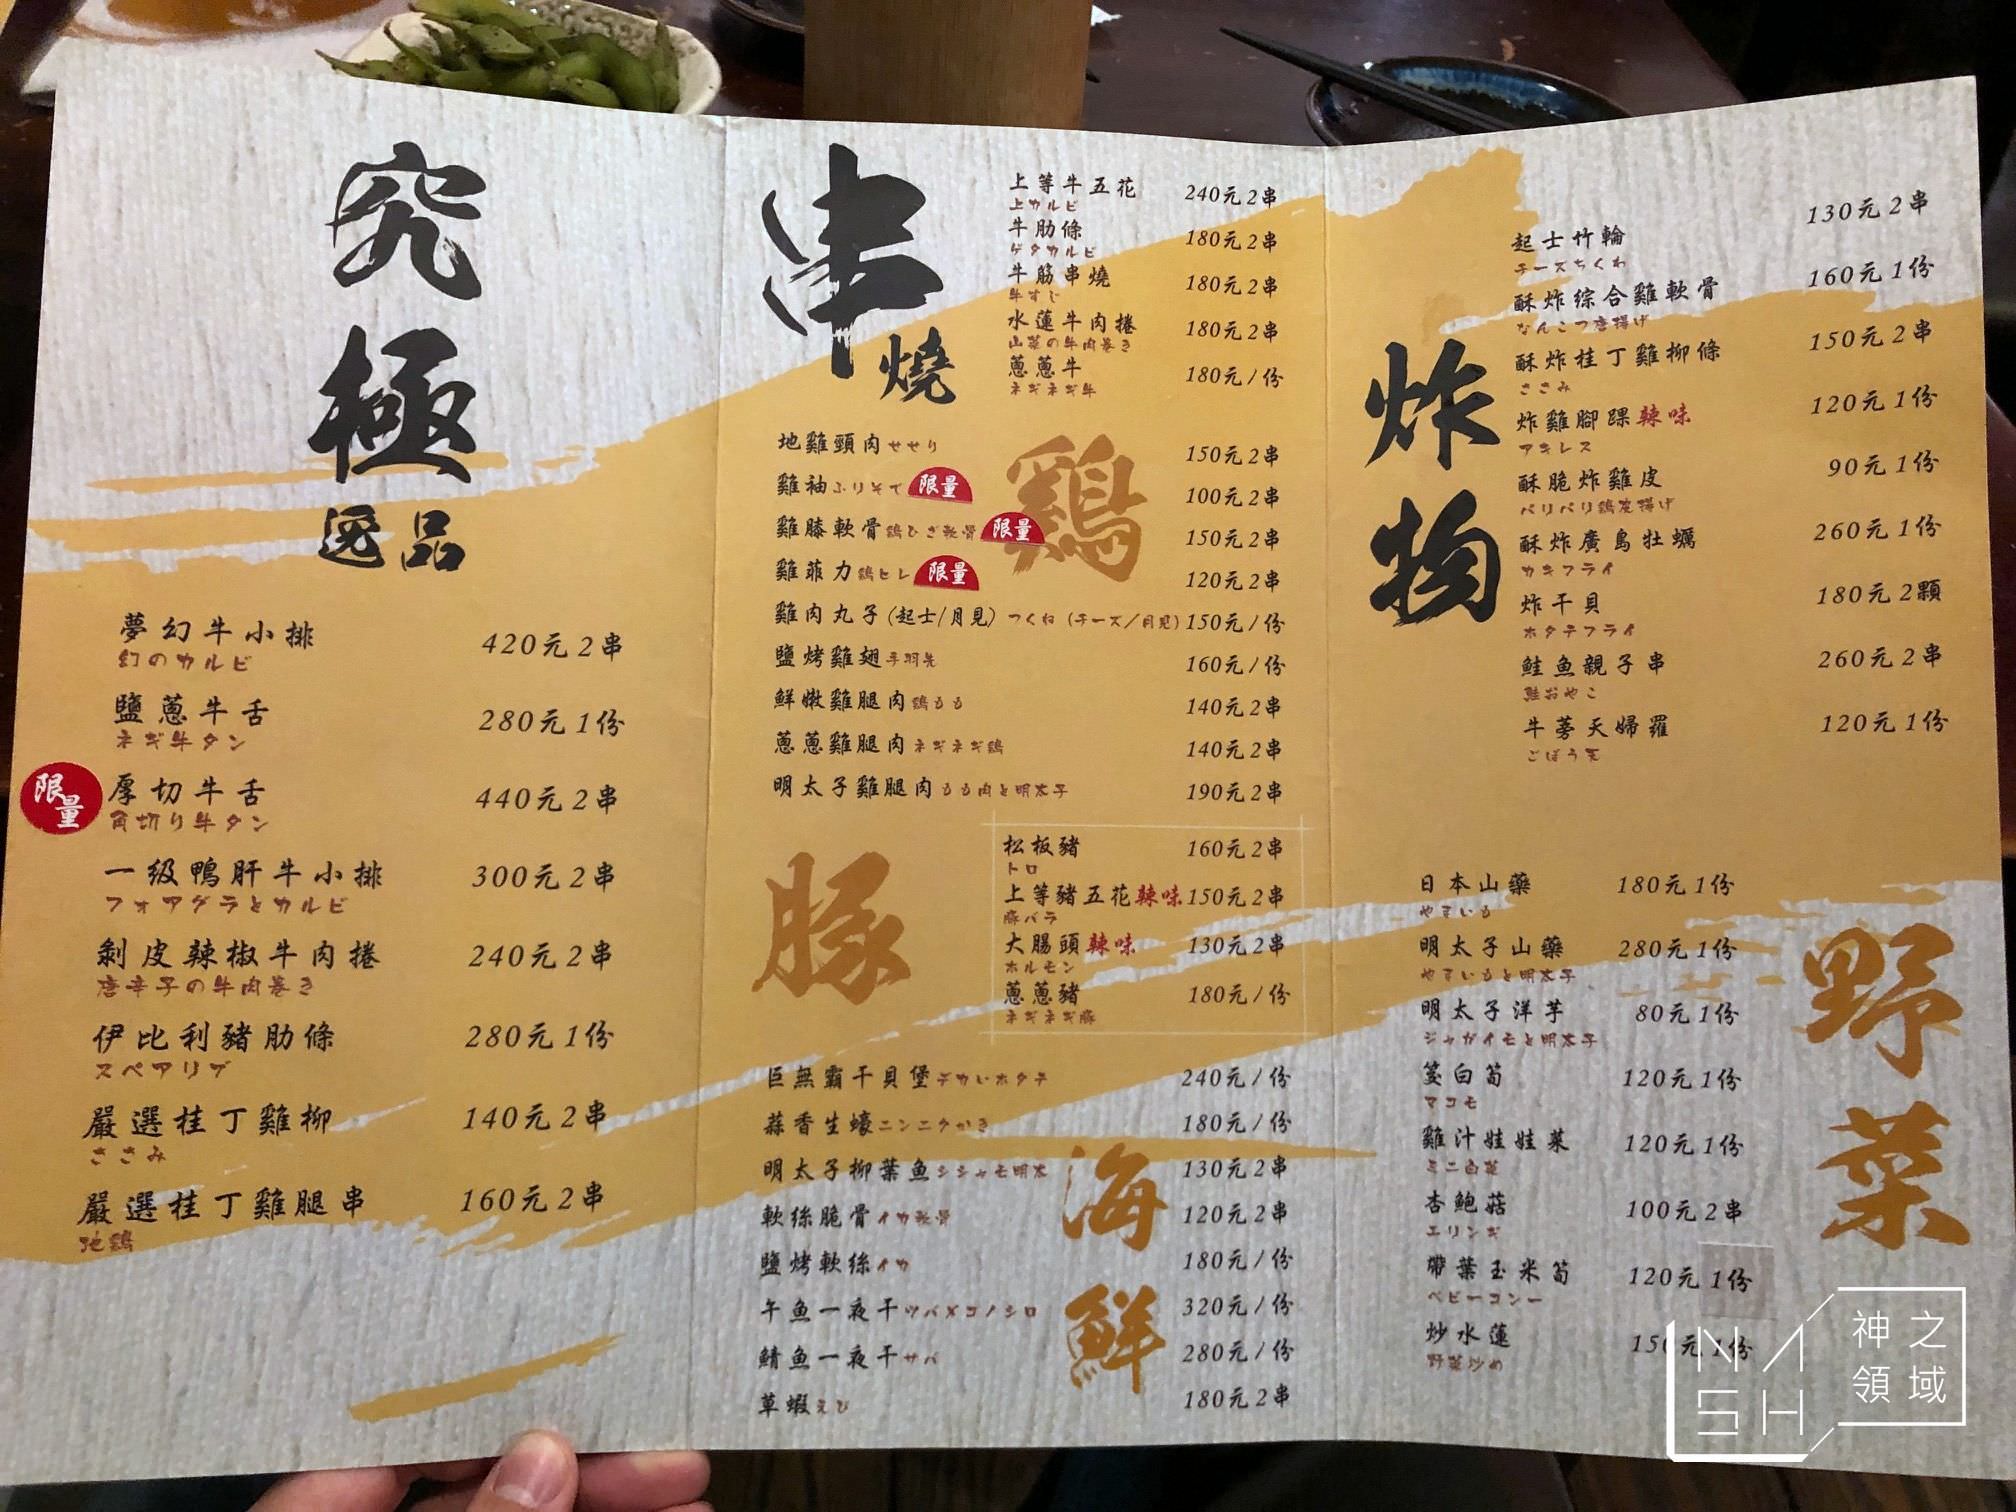 究極
逸品
夢幻牛小排 420元2串
幻のカルビ
鹽蔥牛舌 280元1份
ネギ牛タン
限量
厚切牛舌 440元2串
角切り牛タン
一級鴨肝牛小排 300元2串
フォアグラとカルビ
剝皮辣椒牛肉捲 240元2串
唐辛子の牛肉巻き
伊比利豬肋條 280元1份
スペアリブ
嚴選桂丁雞柳 140元2串
ささみ
嚴選桂丁雞腿串 160元2串
地鶏
串燒
上等牛五花 240元2串
上カルビ
牛肋條 180元2串
ゲタカルビ
牛筋串燒 180元2串
牛すじ
水蓮牛肉捲 180元2串
山菜の牛肉巻き
蔥蔥牛 180元/份
ネギネギ牛
鶏
地雞頸肉 せせり 150元2串
雞袖 ふりそで 限量 100元2串
雞膝軟骨 鶏ひざ軟骨 限量 150元2串
雞菲力 鶏ヒレ 限量 120元2串
雞肉丸子(起士/月見) つくね(チーズ/月見) 150元/份
鹽烤雞翅 手羽先 160元/份
鮮嫩雞腿肉 鶏もも 140元2串
蔥蔥雞腿肉 ネギネギ鶏 140元2串
明太子雞腿肉 もも肉と明太子 190元2串
豚
松板豬 160元2串
トロ
上等豬五花 辣味 150元2串
豚バラ
大腸頭 辣味 130元2串
ホルモン
蔥蔥豬 180元/份
ネギネギ豚
海鮮
巨無霸干貝堡 デカいホタテ 240元/份
蒜香生蠔 ニンニクかき 180元/份
明太子柳葉魚 シシャモ明太 130元2串
軟絲脆骨 イカ軟骨 120元2串
鹽烤軟絲 イカ 180元/份
午魚一夜干 ツバメコノシロ 320元/份
鯖魚一夜干 サバ 280元/份
草蝦 えび 180元2串
炸物
起士竹輪 130元2串
チーズちくわ
酥炸綜合雞軟骨 160元1份
なんこつ唐揚げ
酥炸桂丁雞柳條 150元2串
ささみ
炸雞腳踝 辣味 120元1份
アキレス
酥脆炸雞皮 90元1份
パリパリ鶏皮揚げ
酥炸廣島牡蠣 260元1份
カキフライ
炸干貝 180元2顆
ホタテフライ
鮭魚親子串 260元2串
鮭おやこ
牛蒡天婦羅 120元1份
ごぼう天
野菜
日本山藥 180元1份
やまいも
明太子山藥 280元1份
やまいもと明太子
明太子洋芋 80元1份
ジャガイモと明太子
茭白筍 120元1份
マコモ
雞汁娃娃菜 120元1份
ミニ白菜
杏鮑菇 100元2串
エリンギ
帶葉玉米筍 120元1份
ベビーコンー
炒水蓮 150元1份
野菜炒め
NASH
神之領域